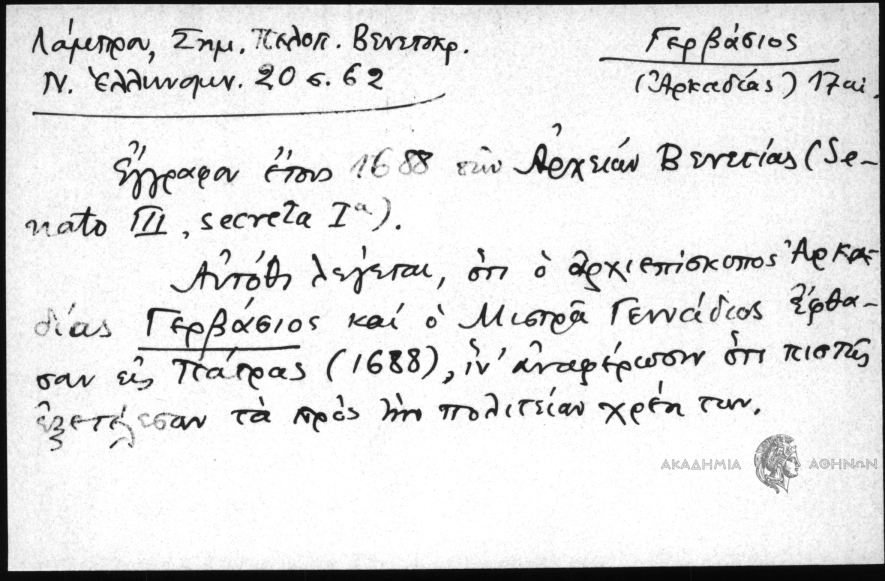 Λάμπρου, Σημ. Πελοπ. Βενετοκρ.
Ν. Ἑλληνομν. 20 σ. 62
Γερβάσιος
(Ἀρκαδίας) 17 αἰ.
Ἔγγραφον ἔτους 1688 τῶν Ἀρχείων Βενετίας (Se-
nato III, secreta Iª).
Αὐτόθι λέγεται, ὅτι ὁ ἀρχιεπίσκοπος Ἀρκα-
δίας Γερβάσιος καί ὁ Μιστρᾶ Γεννάδιος ἔφθα-
σαν εἰς Πάτρας (1688), ἵν' ἀναφέρωσιν ὅτι πιστῶς
ἐξετέλεσαν τὰ πρὸς τὴν πολιτείαν χρέη των.
ΑΚΑΔΗΜΙΑ ΑΘΗΝΩΝ